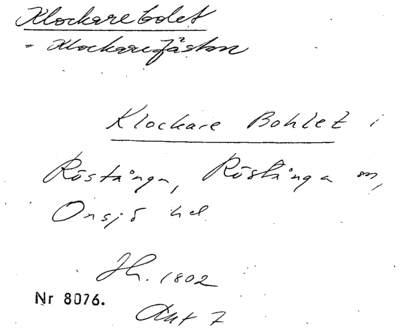 Klockarebolet
= Klockarejästen
Klockare Bohlet i
Röstånga, Röstånga sn,
Onsjö hd
Jh. 1802
Nr 8076.
Akt 7